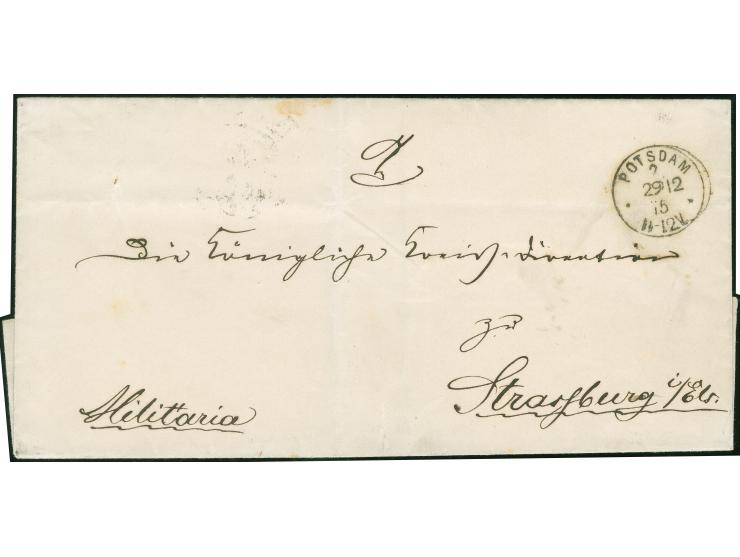 POTSDAM
29 12
75
11-12V.
Die Königliche Kreis-Direction
zu
Strassburg i/Els.
Militaria